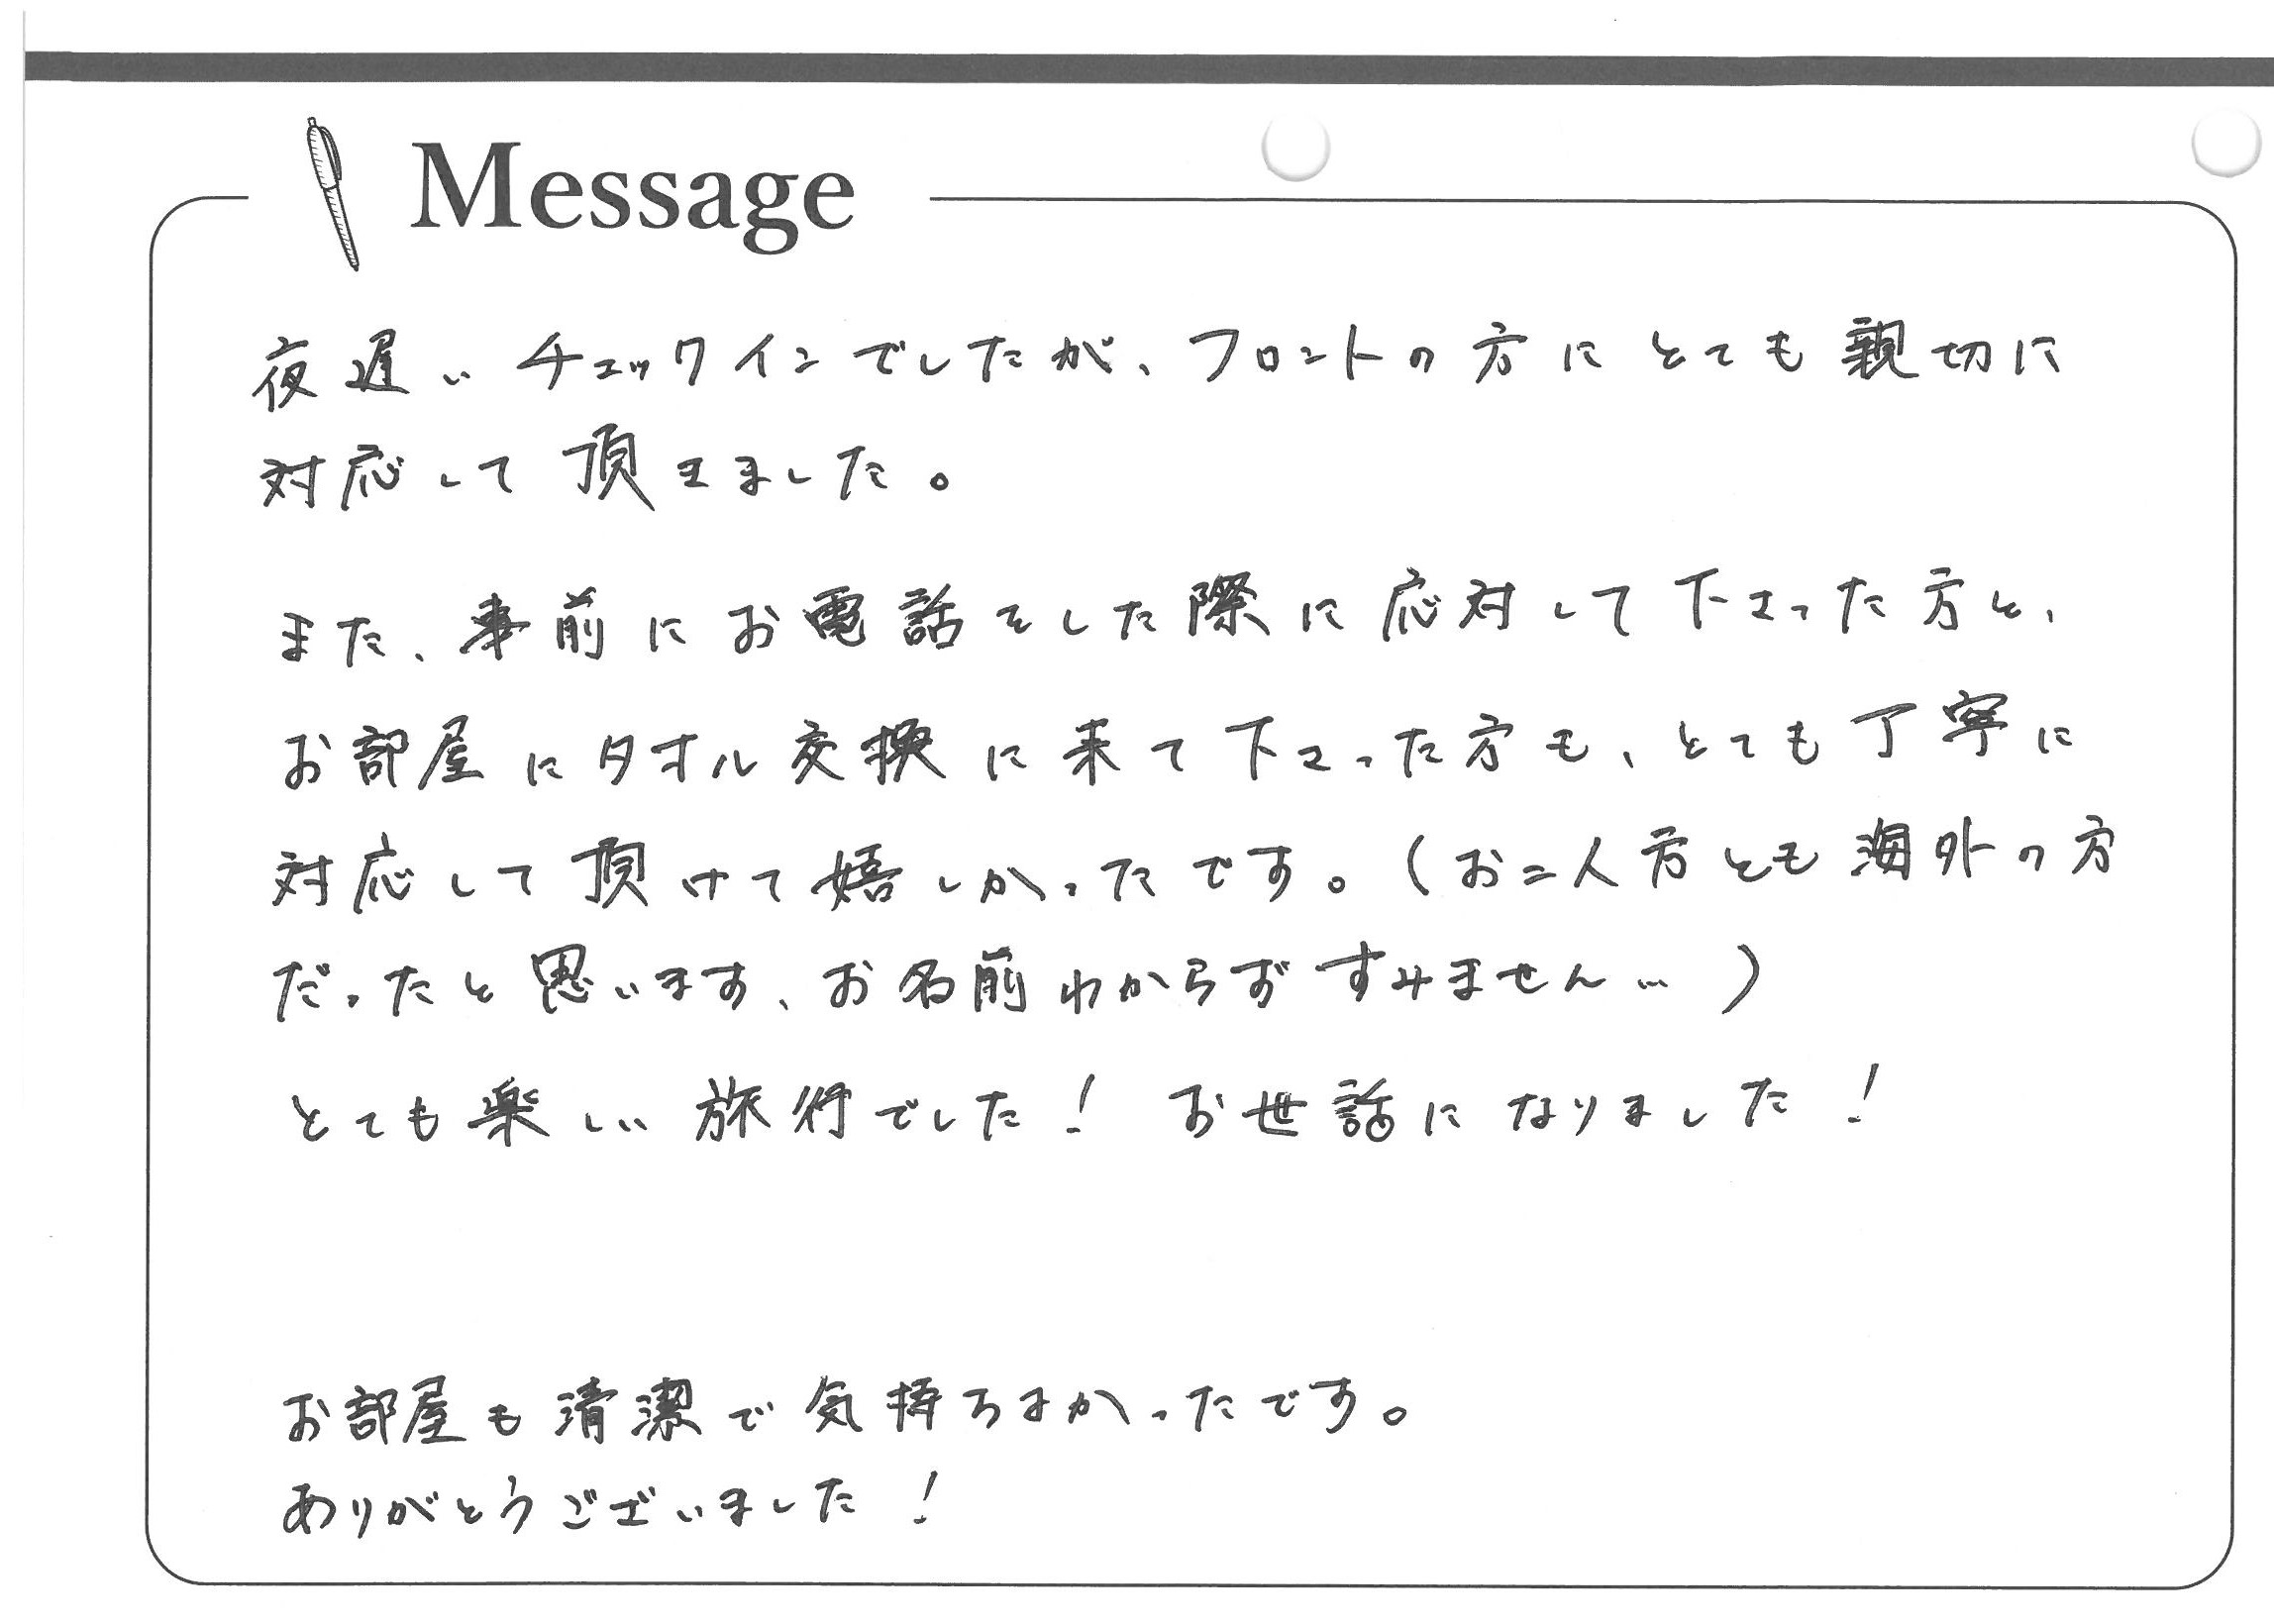 Message
夜遅いチェックインでしたが、フロントの方にとても親切に
対応して頂きました。
また、事前にお電話をした際に応対して下さった方と、
お部屋にタオル交換に来て下さった方も、とても丁寧に
対応して頂けて嬉しかったです。(お二人方とも海外の方
だったと思います、お名前わからずすみません…)
とても楽しい旅行でした! お世話になりました!
お部屋も清潔で気持ちよかったです。
ありがとうございました!